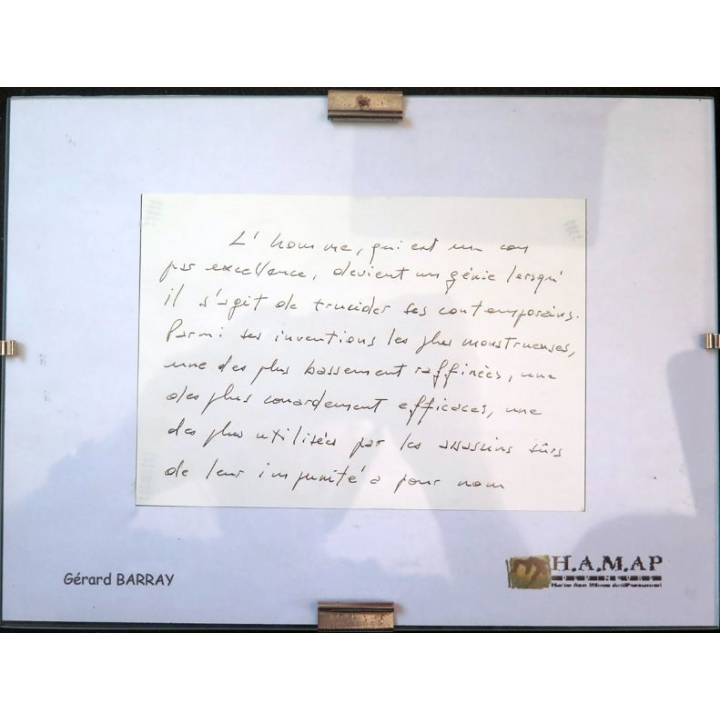 L'homme, qui est un con
par excellence, devient un génie lorsqu'
il s'agit de trucider ses contemporains.
Parmi ses inventions les plus monstrueuses,
une des plus bassement raffinées, une
des plus couardement efficaces, une
des plus utilisées par les assassins sûrs
de leur impunité a pour nom
Gérard BARRAY
H.A.M.AP